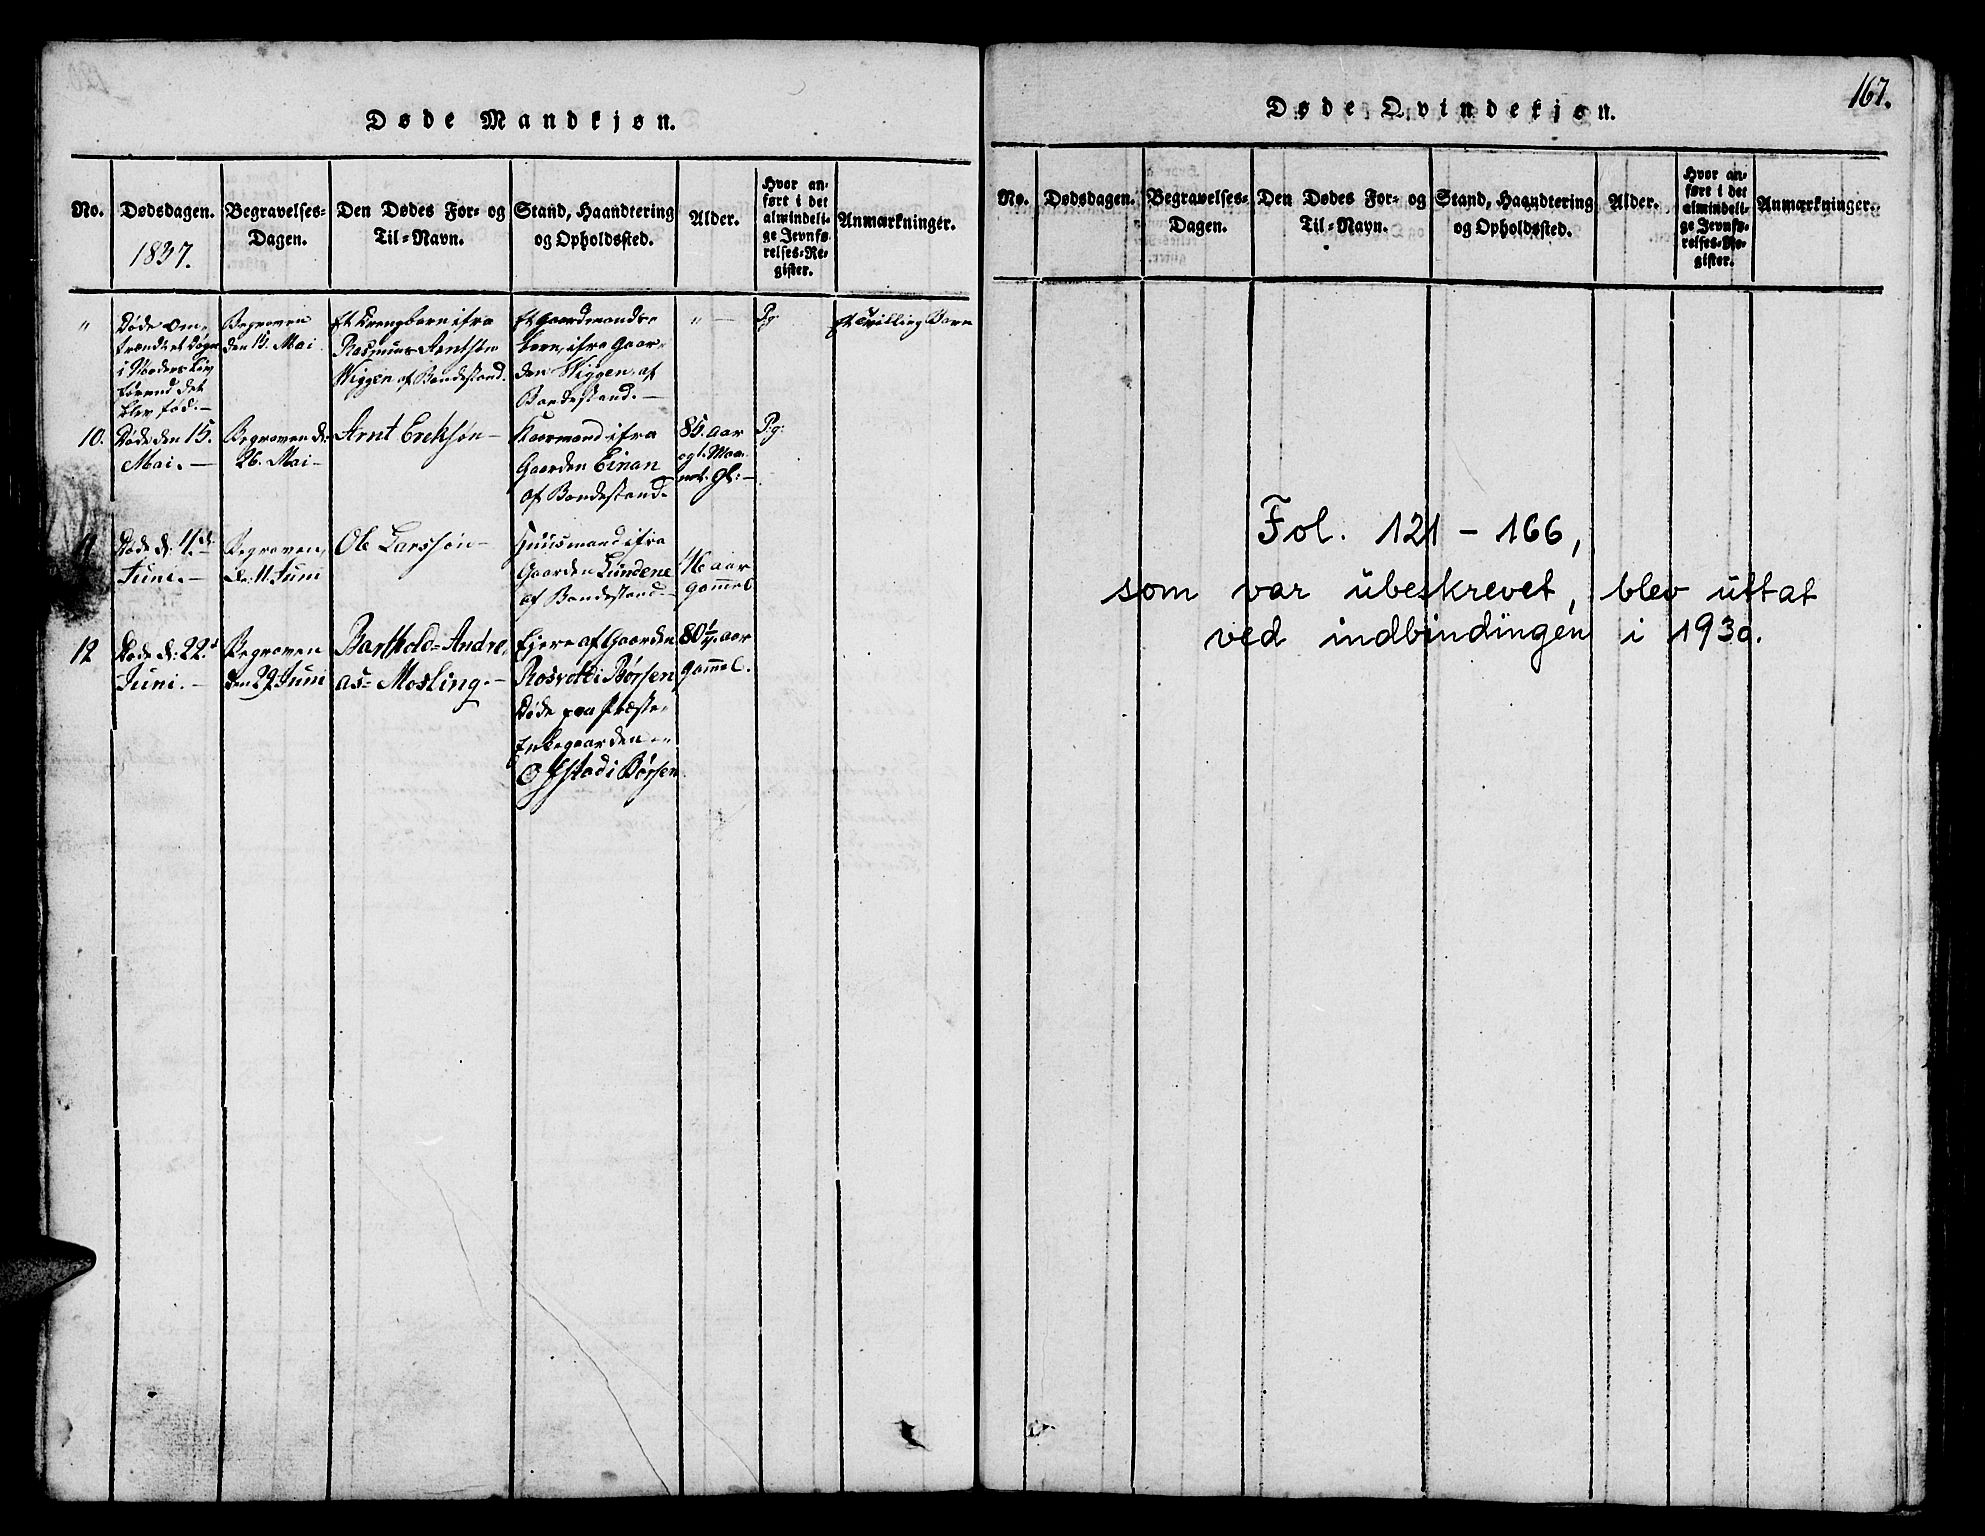 Døde Mandkjøn.
No.
Dødsdagen.
1837.
Begravelses-
Dagen.
Den Dødes For- og
Til-Navn.
Stand, Haandtering
og Opholdssted.
Alder.
Hvor an-
ført i det
almindeli-
ge Jevnfø-
relses-Re-
gister.
Anmærkninger.
"
Døde om-
trendt et Døgn
i Moders Liv
førend det
blev fød. —
Begraven
den 15. Mai
et Drengbarn ifra
Rasmus Arntsøn
Wiggen af Bondestand.
et Gaardmands-
barn, ifra Gaar-
den Wiggen, af
Bondestand. —
" —
Pg:
et Tvilling Barn
10.
Døde den 15.
Mai. —
Begraven d:
26. Mai —
Arnt Ereksøn —
Kaarmand ifra
Gaarden Einan
af Bondestand.
85. aar
og 1. Maa-
ned. gl: —
Pg:
11
Døde d: 4.de
Juni. —
Begraven,
d: 11 Juni
Ole Larssøn —
Huusmand ifra
Gaarden Lundene
af Bondestand —
46 aar
gammel
12
Døde d: 22.d
Juni. —
Begraven
den 29. Juni
Barthold Andre-
as Mosling. —
Ejere af Gaarden
Rosvold i Børsen
Døde paa Præste-
Enkegaarden
Ofstad i Børsen.
80 1/4. aar
gammel.
Døde Qvindekjøn.
167.
No.
Dødsdagen.
Begravelses-
Dagen.
Den Dødes For- og
Til-Navn.
Stand, Haandtering
og Opholdssted.
Alder.
Hvor an-
ført i det
almindeli-
ge Jevnfø-
relses-Re-
gister.
Anmærkninger.
Fol. 121 - 166,
som var ubeskrevet, blev uttat
ved indbindingen i 1930.